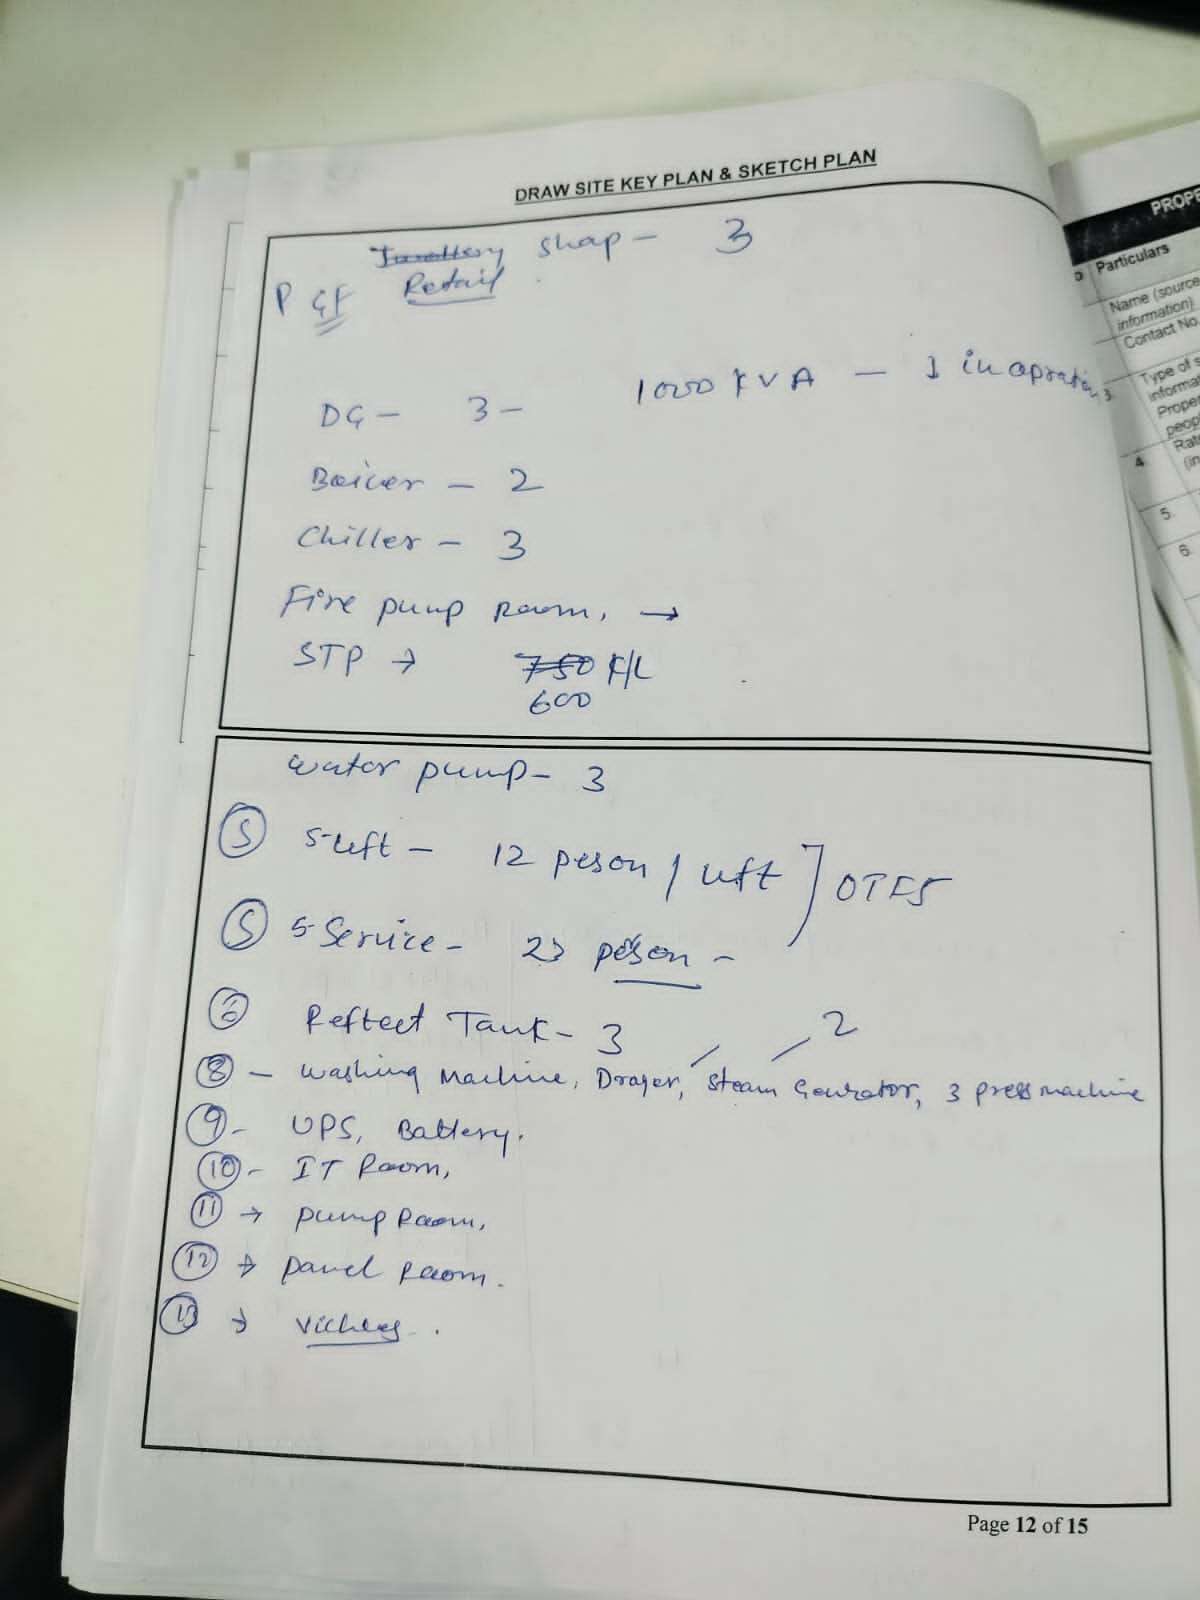 DRAW SITE KEY PLAN & SKETCH PLAN
Shap - 3
P GF Retail
DG - 3 - 1000 KVA - 1 in opration
Boiler - 2
Chiller - 3
Fire pump Room, →
STP → 750 K/L
600
water pump - 3
5 5-Lift - 12 peson / Lift ] OTES
5 5-Service - 23 peson -
Tank - 3
2
8 - washing Machine, Drayer, Steam Genrator, 3 press machine
9 - UPS, Battery.
10 - IT Room,
11 → pump Room,
12 → panel Room.
13 →
Page 12 of 15
PROPE
Particulars
Name (source
information)
Contact No.
3.
Type of s
informat
Proper
peopl
4. Rate
(in
5.
6.